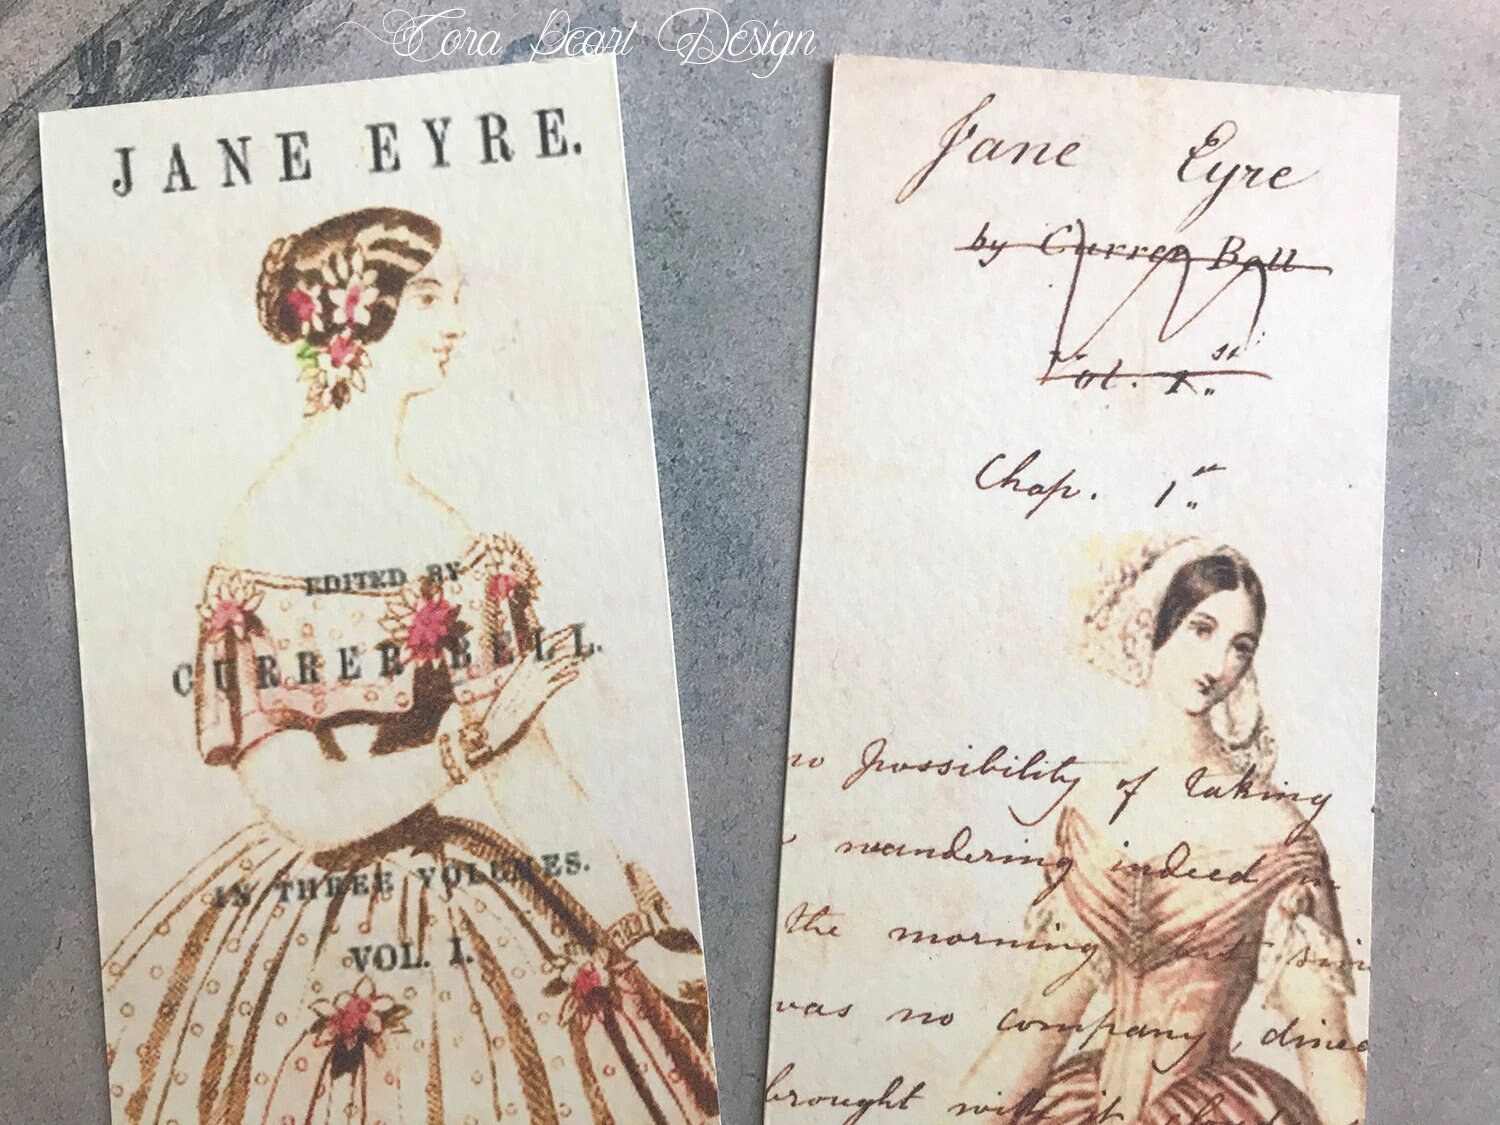 Cora Pearl Design
JANE EYRE.
EDITED BY
CURRER BELL.
IN THREE VOLUMES.
VOL. I.
Jane Eyre
by Currer Bell
Vol. 1.st
Chap. 1.st
no possibility of taking
wandering indeed in
the morning but sin
was no company, dined
brought with it cloud